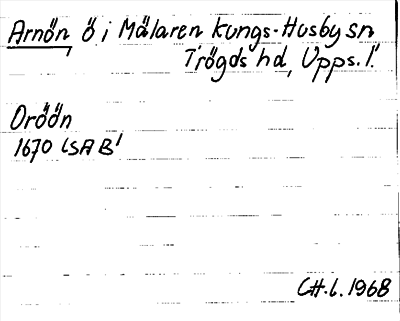 Arnön ö i Mälaren Kungs-Husby sn
Trögds hd, Upps. l.
Oröön
1670 LSA B1
CH. L. 1968